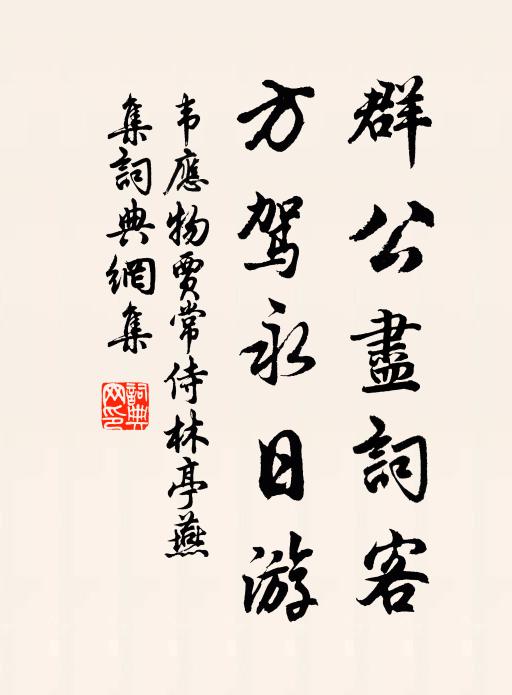 群公盡詞客
方駕永日游
韦應物賈常侍林亭燕
集詞典網集
詞典
网印